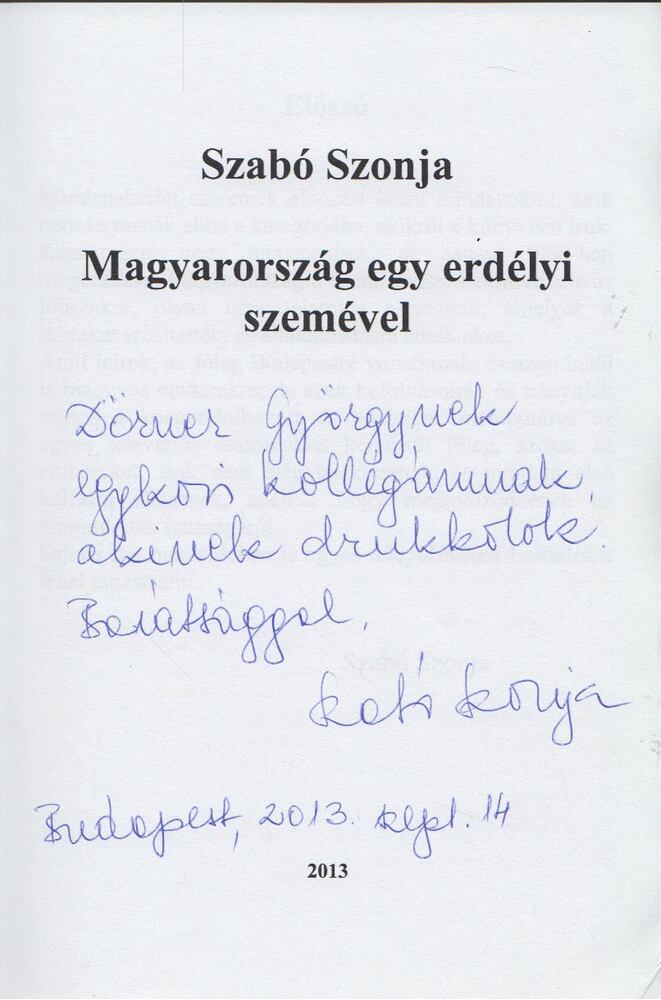 Szabó Szonja
Magyarország egy erdélyi
szemével
Dörner Györgynek
egykori kollégámnak,
akinek drukkolok.
Barátsággal,
Szabó Szonja
Budapest, 2013. szept. 14
2013